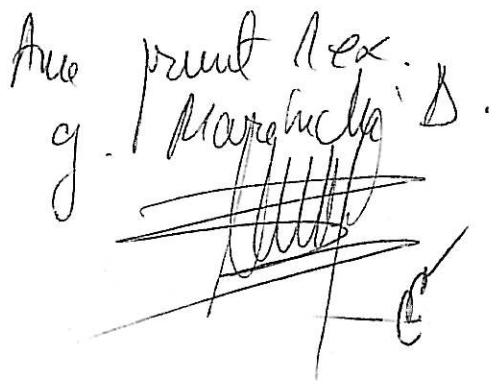 Am primit 1 ex.
g. Marinela D.